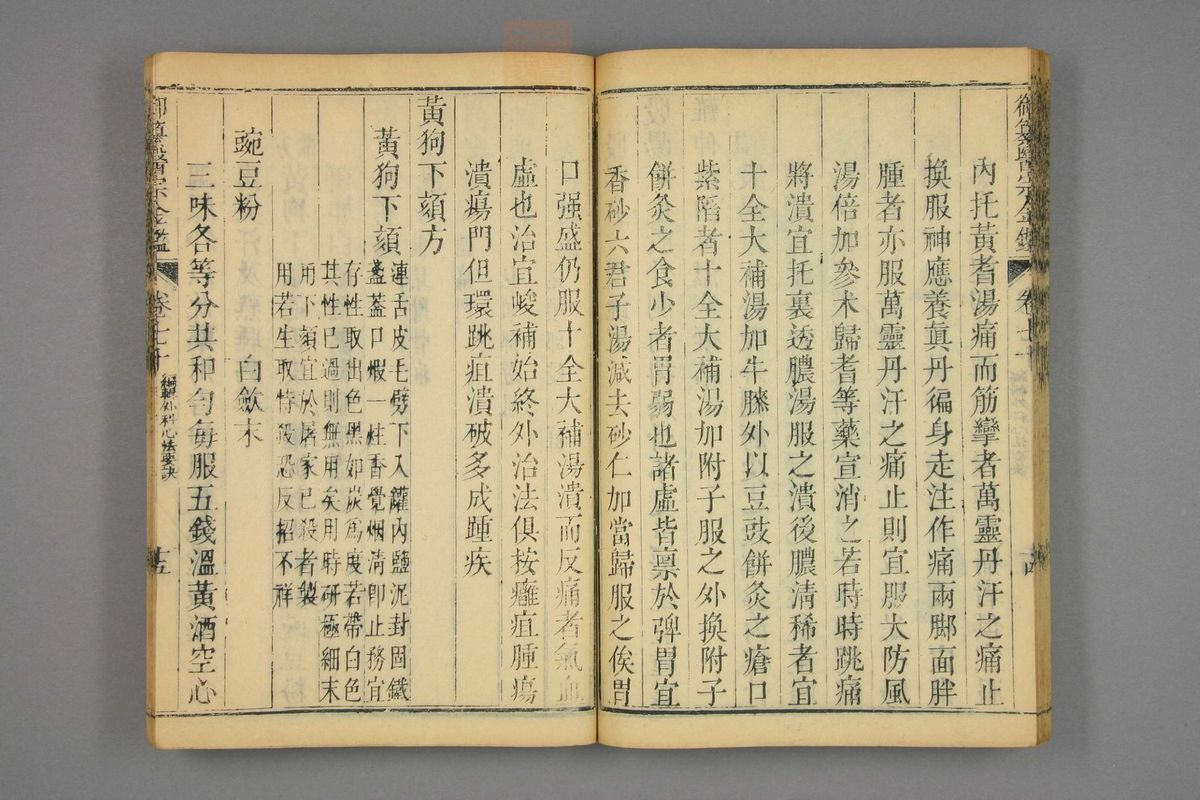 御纂醫宗金鑑 卷七十
內托黃耆湯痛而筋攣者萬靈丹汗之痛止
換服神應養眞丹徧身走注作痛兩脚面胖
腫者亦服萬靈丹汗之痛止則宜服大防風
湯倍加參朮歸耆等藥宣消之若時時跳痛
將潰宜托裏透膿湯服之潰後膿清稀者宜
十全大補湯加牛膝外以豆豉餅灸之瘡口
紫陷者十全大補湯加附子服之外換附子
餅灸之食少者胃弱也諸虛皆禀於脾胃宜
香砂六君子湯減去砂仁加當歸服之俟胃
口强盛仍服十全大補湯潰而反痛者氣血
虛也治宜峻補始終外治法俱按癰疽腫瘍
潰瘍門但環跳疽潰破多成踵疾
黃狗下頦方
黃狗下頦 連舌皮毛劈下入罐內鹽泥封固鐵
盞蓋口煅一炷香覺烟清卽止務宜
存性取出色黑如炭爲度若帶白色
其性已過則無用矣用時研極細末
用下頦宜於屠家已殺者製
用若生取特殺恐反招不祥
豌豆粉 白蘞末
三味各等分共和勻每服五錢溫黃酒空心
御纂醫宗金鑑 卷七十 編輯外科心法要訣 十五